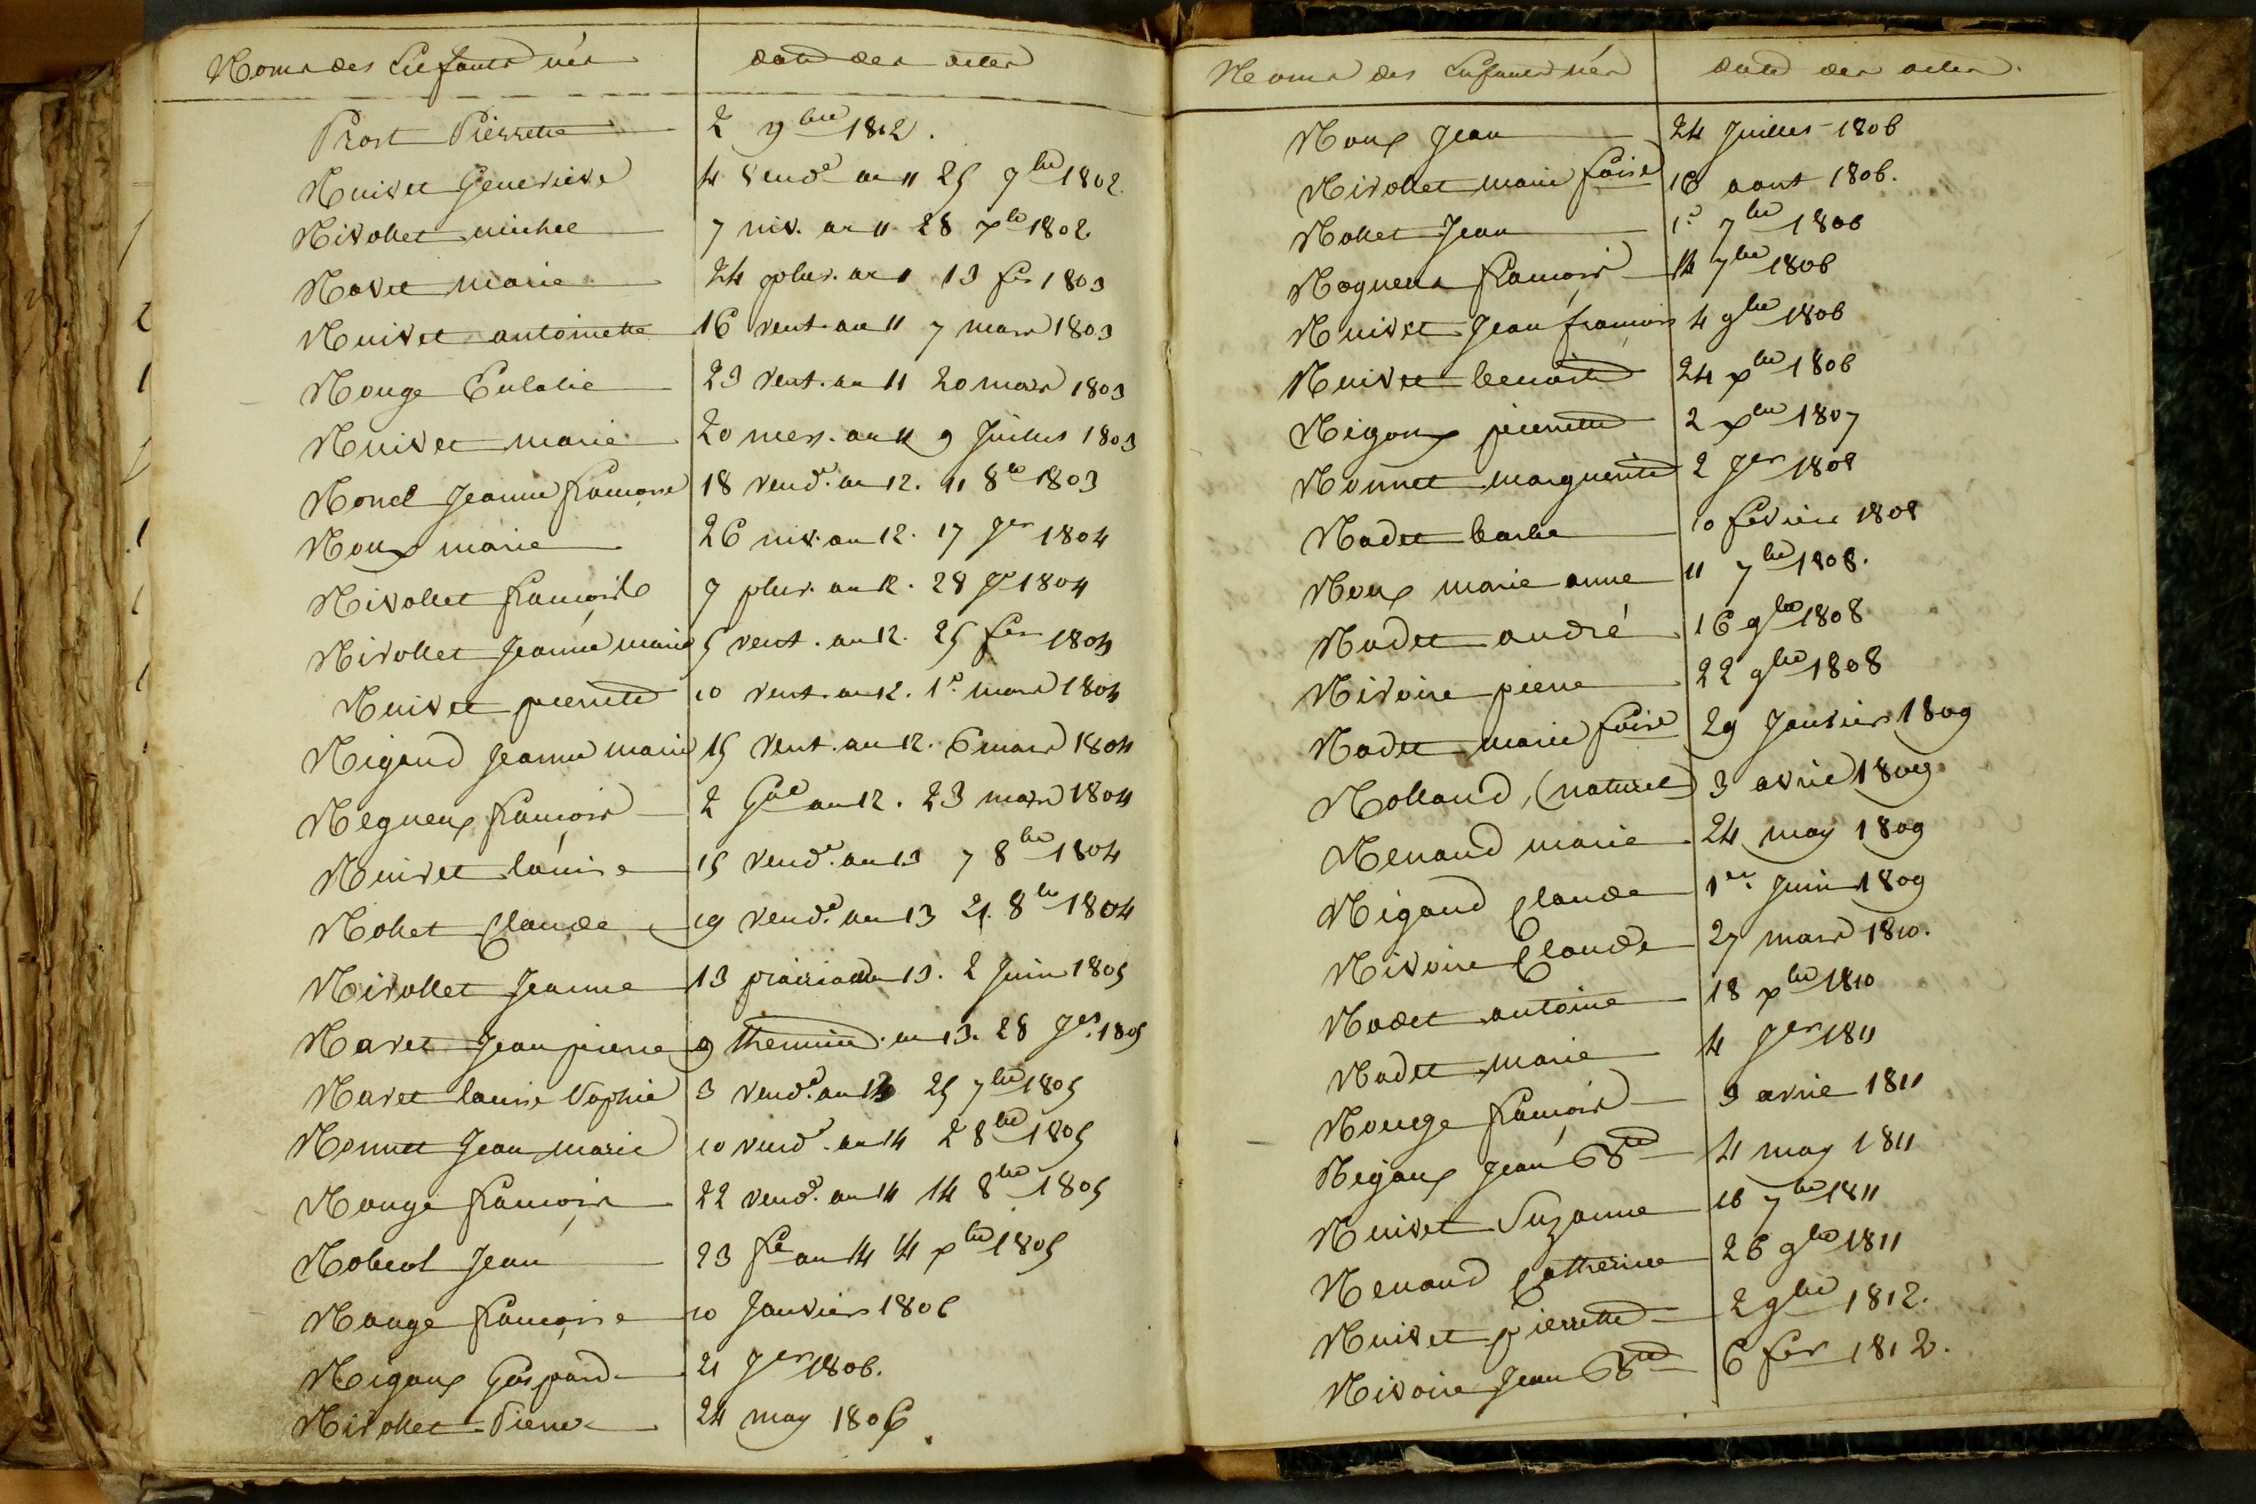 Noms des Enfants nés
date des actes
Prost Pierrette 2 9bre 1812.
Ruivet Genevieve 4 vend.e an 11 25 7bre 1802.
Rivollet michel 7 niv. an 11 28 xbre 1802.
Ravet marie 24 pluv. an 11 13 fer 1803
Ruivet antoinette 16 vent. an 11 7 mars 1803
Rouge Eulalie 29 vent. an 11 20 mars 1803
Ruivet marie 20 mess. an 11 9 Juillet 1803
Jeanne françoise 18 vend.e an 12. 11 8bre 1803
Roux marie 26 niv. an 12. 17 Jer 1804
Rivollet françoise 7 pluv. an 12. 28 Jer 1804
Rivollet Jeanne marie 5 vent. an 12. 25 fer 1804
Ruivet pierrette 10 vent. an 12. 1er mars 1804
Rigaud Jeanne marie 15 vent. an 12. 6 mars 1804
Regneux françois 2 Gal an 12. 23 mars 1804
Ruivet louise 15 vend.e an 13 7 8bre 1804
Rollet Claude 19 vend.e an 13 21. 8bre 1804
Rivollet Jeanne 13 prairial an 13. 2 Juin 1805
Ravet Jean pierre 9 thermid. an 13. 28 Jet. 1805
Ravet louise Sophie 3 vend.e an 14 25 7bre 1805
Jean marie 10 vend.e an 14 2 8bre 1805
Rouge françois 22 vend.e an 14 14 8bre 1805
Jean 23 fre an 14 14 xbre 1805
Rouge françoise 10 Janvier 1806
Rigoux Gaspard 21 Jer 1806.
Rivollet Pierre 24 may 1806.
Noms des Enfants nés
date des actes.
Roux Jean 24 Juillet 1806
Rivollet marie foise 18 aout 1806.
Rollet Jean 1er 7bre 1806
françois 14 7bre 1806
Ruivet Jean françois 4 9bre 1806
Ruivet benoite 24 xbre 1806
Rigoux pierrette 2 xbre 1807
marguerite 2 Jer 1808
Radet barbe 10 fevrier 1808
Roux marie anne 11 7bre 1808.
Radet andré 16 9bre 1808
Rivoire pierre 22 9bre 1808
Radet marie foise 29 Janvier 1809
Rolland, (naturel) 3 avril 1809
Renaud marie 24 may 1809
Rigaud Claude 1er Juin 1809
Rivoire Claude 27 mars 1810.
Radet antoine 18 xbre 1810
Radet marie 4 Jer 1811
Rouge françois 9 avril 1811
Rigoux Jean Bte 4 may 1811
Ruivet Suzanne 18 7bre 1811
Renaud Catherine 26 9bre 1811
Ruivet pierrette 2 9bre 1812.
Rivoire Jean Bte 6 fer 1812.